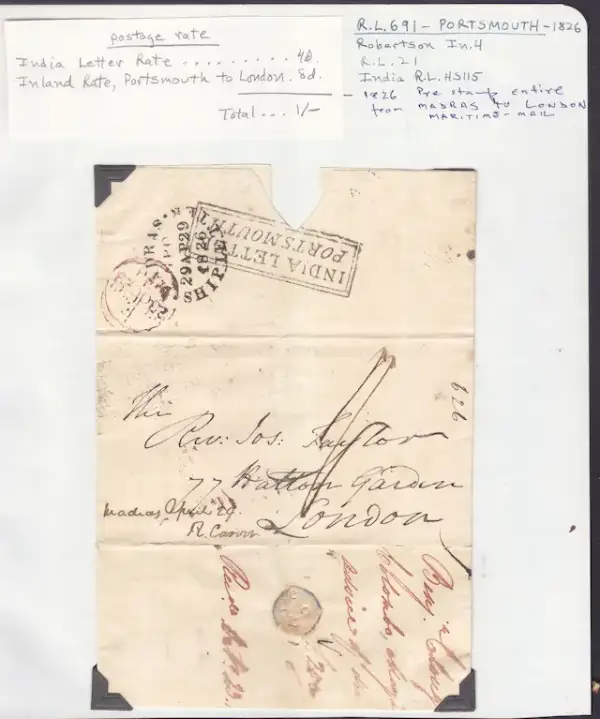 postage rate
India Letter Rate ......... 4d.
Inland Rate, Portsmouth to London. 8d.
Total ... 1/-
R.L.691 - PORTSMOUTH - 1826
Robertson In.4
R.L.21
India R.L.HS115
- 1826 Pre stamp entire
from MADRAS TO LONDON
MARITIME-MAIL
INDIA LETTER
PORTSMOUTH
29 AP 29
1826
SHIP LETTER
626
The
Rev: Jos: Taylor
77 Hatton Garden
London
Madras, April 29.
Benj.
Colombo,
advice of